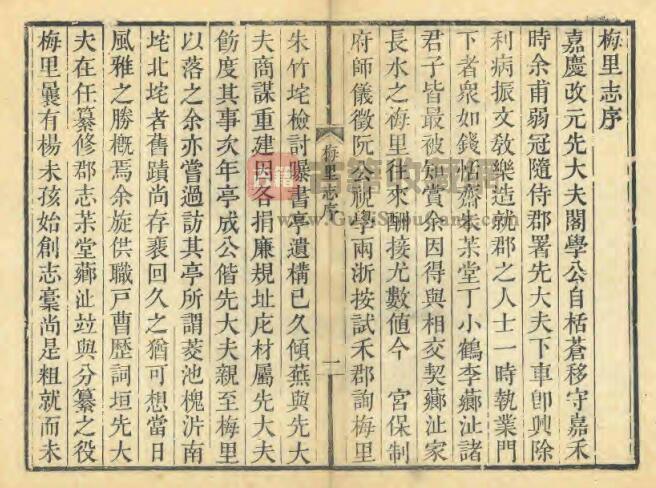 梅里志序
嘉慶改元先大夫閣學公自栝蒼移守嘉禾
時余甫弱冠隨侍郡署先大夫下車卽興除
利病振文敎樂造就郡之人士一時執業門
下者衆如錢恬齋朱茮堂丁小鶴李薌沚諸
君子皆最被知賞余因得與相交契薌沚家
長水之梅里往來酬接尤數値今 宮保制
府師儀徵阮公視學兩浙按試禾郡詢梅里
梅里志序
一
朱竹垞檢討曝書亭遺構已久傾蕪與先大
夫商謀重建因各捐廉規址庀材屬先大夫
飭度其事次年亭成公偕先大夫親至梅里
以落之余亦嘗過訪其亭所謂菱池槐沜南
垞北垞者舊蹟尚存裵回久之猶可想當日
風雅之勝槪焉余旋供職戸曹歴詞垣先大
夫在任纂修郡志茮堂薌沚竝與分纂之役
梅里曩有楊未孩始創志稾尚是粗就而未
古籍
古籍收藏網
www.GujiShoucang.com